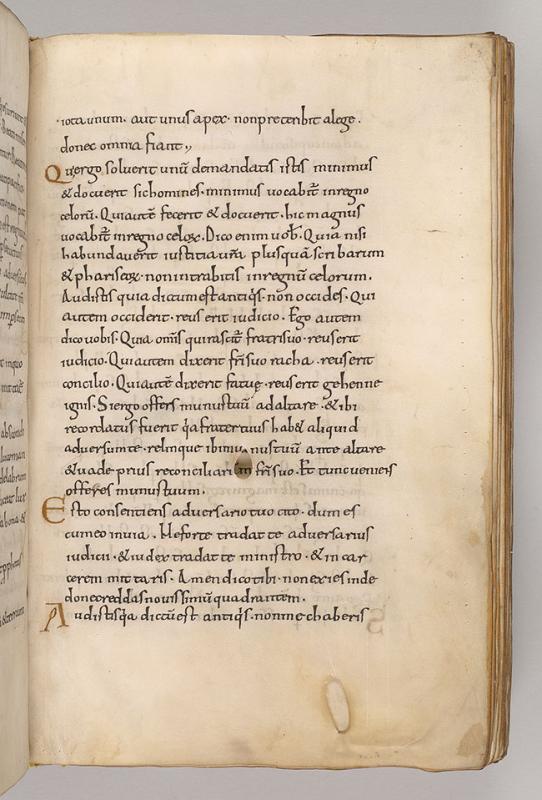 iota unum. aut unus apex. non preteribit alege.
donec omnia fiant,,
Qui ergo soluerit unū demandatis istis minimus
& docuerit sic homines. minimus uocabit̄ inregno
celorū. Qui autē fecerit & docuerit. hic magnus
uocabit̄ inregno celoꝝ. Dico enim uob̄. Quia nisi
habundauerit iustitia ur̄a plusquā scribarum
& phariseoꝝ. non intrabitis inregnū celorum.
Audistis quia dictum est antiqͥs. non occides. Qui
autem occiderit. reus erit iudicio. Ego autem
dico uobis. Quia om̄is qui irascit̄ fratri suo. reus erit
iudicio. Qui autem dixerit fr̄i suo racha. reus erit
concilio. Qui autē dixerit fatuę. reus erit gehenne
ignis. Si ergo offers munus tuū ad altare. & ibi
recordatus fuerit qͥa frater tuus hab& aliquid
aduersum te. relinque ibi munus tuū ante altare
& uade prius reconciliari fr̄i suo. Et tunc ueniens
offeres munus tuum.
Esto consentiens aduersario tuo cito. dum es
cum eo in uia. Ne forte tradat te aduersarius
iudici. & iudex tradat te ministro. & in car
cerem mittaris. Amen dico tibi. non exies inde
donec reddas nouissimū quadrantem.
Audistis qͥa dictū est antiqͥs. non mechaberis